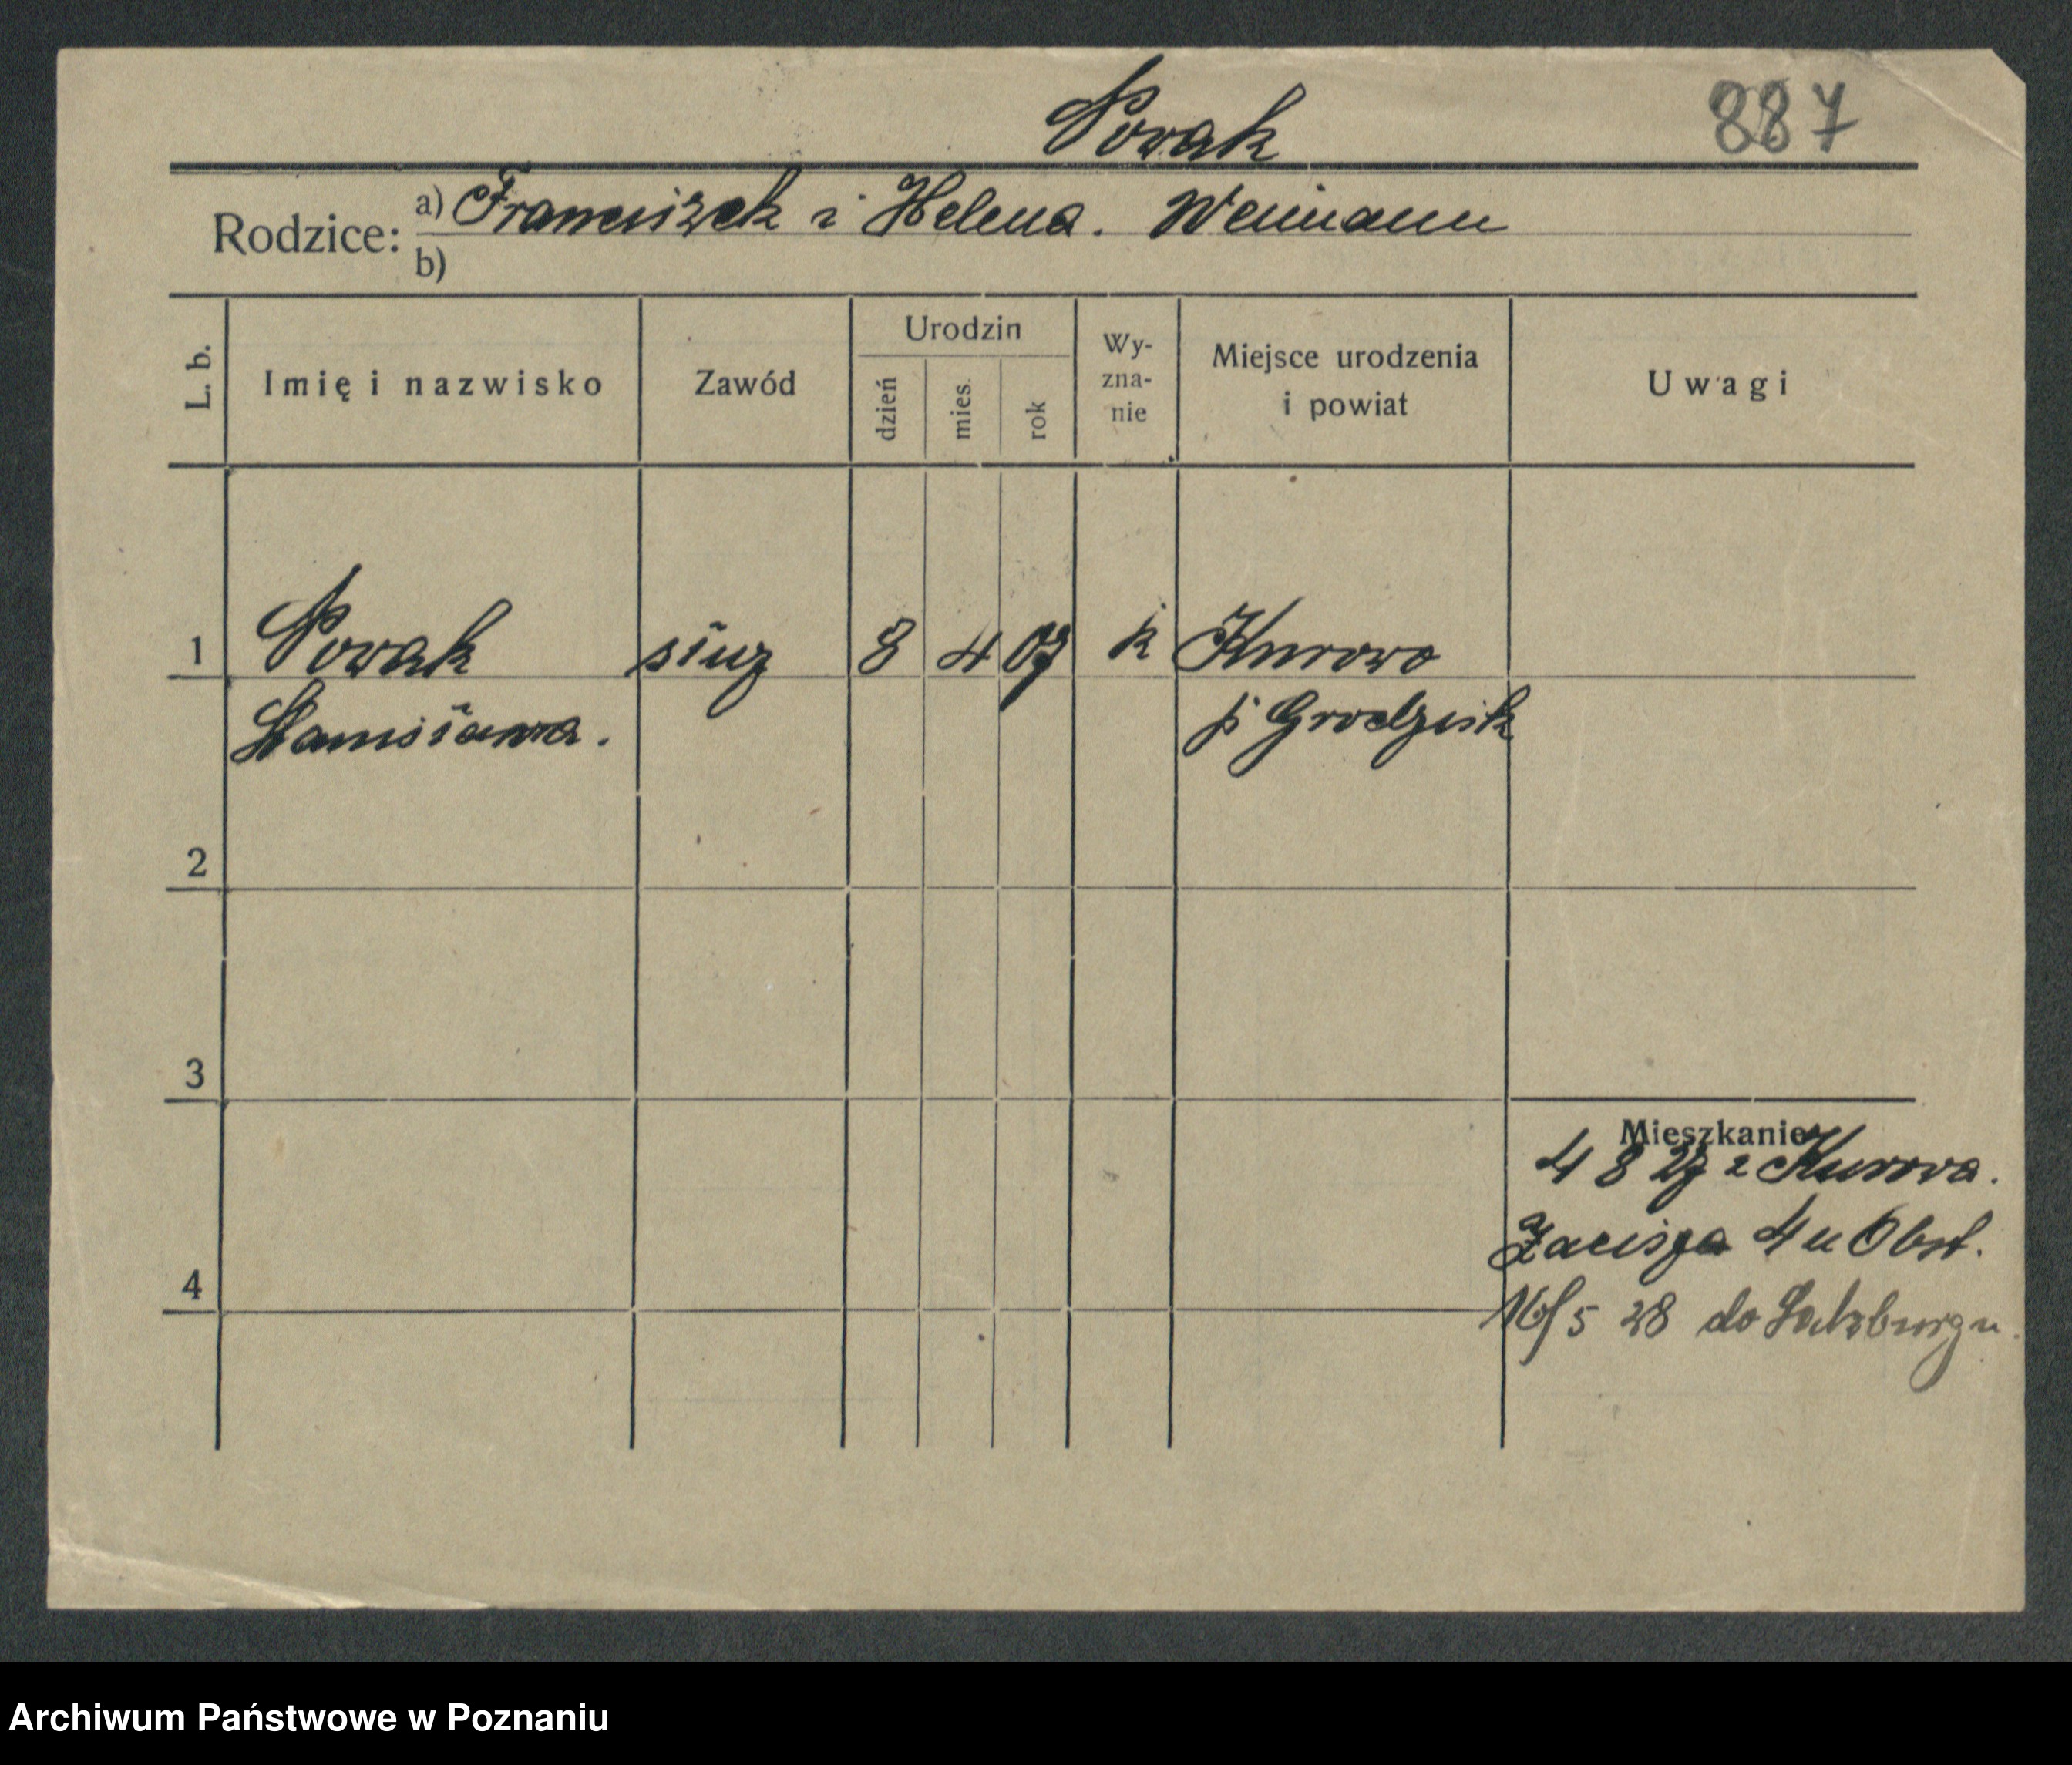 Nowak
887
Rodzice: a) Franciszek i Helena. Weimann
b)
L. b.
Imię i nazwisko
Zawód
Urodzin
dzień
mies.
rok
Wy-
zna-
nie
Miejsce urodzenia
i powiat
Uwagi
1 Nowak służ 8 4 07 k Kurowo
Stanisława. p Grodzisk
2
3
Mieszkanie
4 8 27 z Kurowa.
Zacisze 4 u Obst.
4
16/5 28 do Salzburgu.
Archiwum Państwowe w Poznaniu